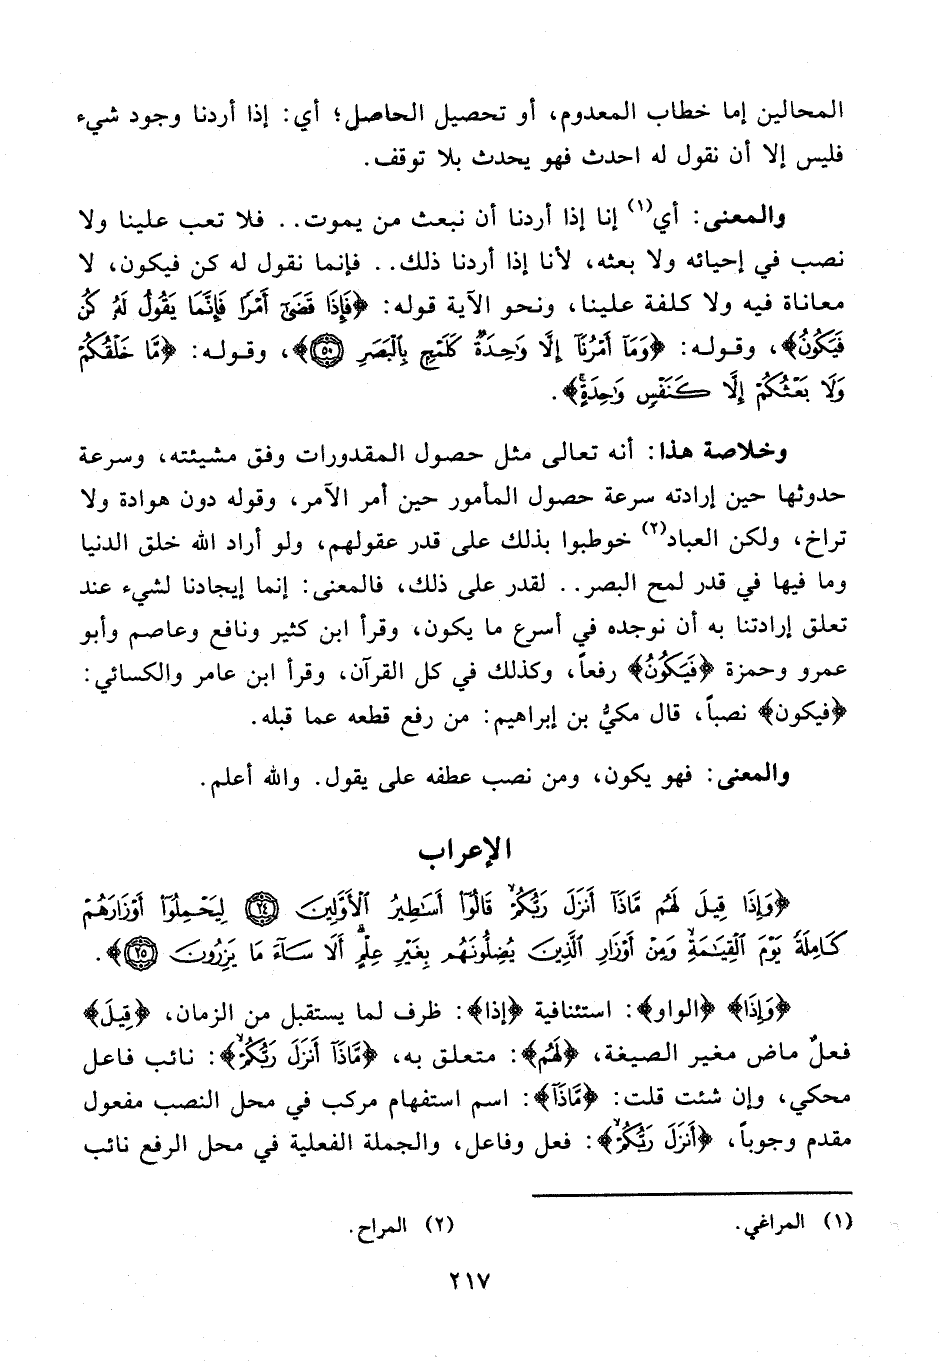 المحالين إما خطاب المعدوم، أو تحصيل الحاصل؛ أي: إذا أردنا وجود شيء
فليس إلا أن نقول له احدث فهو يحدث بلا توقف.
والمعنى: أي(١) إنا إذا أردنا أن نبعث من يموت.. فلا تعب علينا ولا
نصب في إحيائه ولا بعثه، لأنا إذا أردنا ذلك.. فإنما نقول له كن فيكون، لا
معاناة فيه ولا كلفة علينا، ونحو الآية قوله: ﴿فَإِذَا قَضَىٰٓ أَمْرًا فَإِنَّمَا يَقُولُ لَهُۥ كُن
فَيَكُونُ﴾، وقوله: ﴿وَمَآ أَمْرُنَآ إِلَّا وَٰحِدَةٌ كَلَمْحٍۭ بِٱلْبَصَرِ ٥٠﴾، وقوله: ﴿مَّا خَلْقُكُمْ
وَلَا بَعْثُكُمْ إِلَّا كَنَفْسٍ وَٰحِدَةٍۚ﴾.
وخلاصة هذا: أنه تعالى مثل حصول المقدورات وفق مشيئته، وسرعة
حدوثها حين إرادته سرعة حصول المأمور حين أمر الآمر، وقوله دون هوادة ولا
تراخ، ولكن العباد(٢) خوطبوا بذلك على قدر عقولهم، ولو أراد الله خلق الدنيا
وما فيها في قدر لمح البصر.. لقدر على ذلك، فالمعنى: إنما إيجادنا لشيء عند
تعلق إرادتنا به أن نوجده في أسرع ما يكون، وقرأ ابن كثير ونافع وعاصم وأبو
عمرو وحمزة ﴿فَيَكُونُ﴾ رفعاً، وكذلك في كل القرآن، وقرأ ابن عامر والكسائي:
﴿فيكون﴾ نصباً، قال مكيُّ بن إبراهيم: من رفع قطعه عما قبله.
والمعنى: فهو يكون، ومن نصب عطفه على يقول. والله أعلم.
الإعراب
﴿وَإِذَا قِيلَ لَهُم مَّاذَآ أَنزَلَ رَبُّكُمْۙ قَالُوٓا۟ أَسَٰطِيرُ ٱلْأَوَّلِينَ ٢٤ لِيَحْمِلُوٓا۟ أَوْزَارَهُمْ
كَامِلَةً يَوْمَ ٱلْقِيَٰمَةِۙ وَمِنْ أَوْزَارِ ٱلَّذِينَ يُضِلُّونَهُم بِغَيْرِ عِلْمٍۗ أَلَا سَآءَ مَا يَزِرُونَ ٢٥﴾.
﴿وَإِذَا﴾ ﴿الواو﴾: استئنافية ﴿إذا﴾: ظرف لما يستقبل من الزمان، ﴿قِيلَ﴾
فعلٌ ماض مغير الصيغة، ﴿لَهُم﴾: متعلق به، ﴿مَّاذَآ أَنزَلَ رَبُّكُمْۙ﴾: نائب فاعل
محكي، وإن شئت قلت: ﴿مَّاذَآ﴾: اسم استفهام مركب في محل النصب مفعول
مقدم وجوباً، ﴿أَنزَلَ رَبُّكُمْۙ﴾: فعل وفاعل، والجملة الفعلية في محل الرفع نائب
(١) المراغي. (٢) المراح.
٢١٧